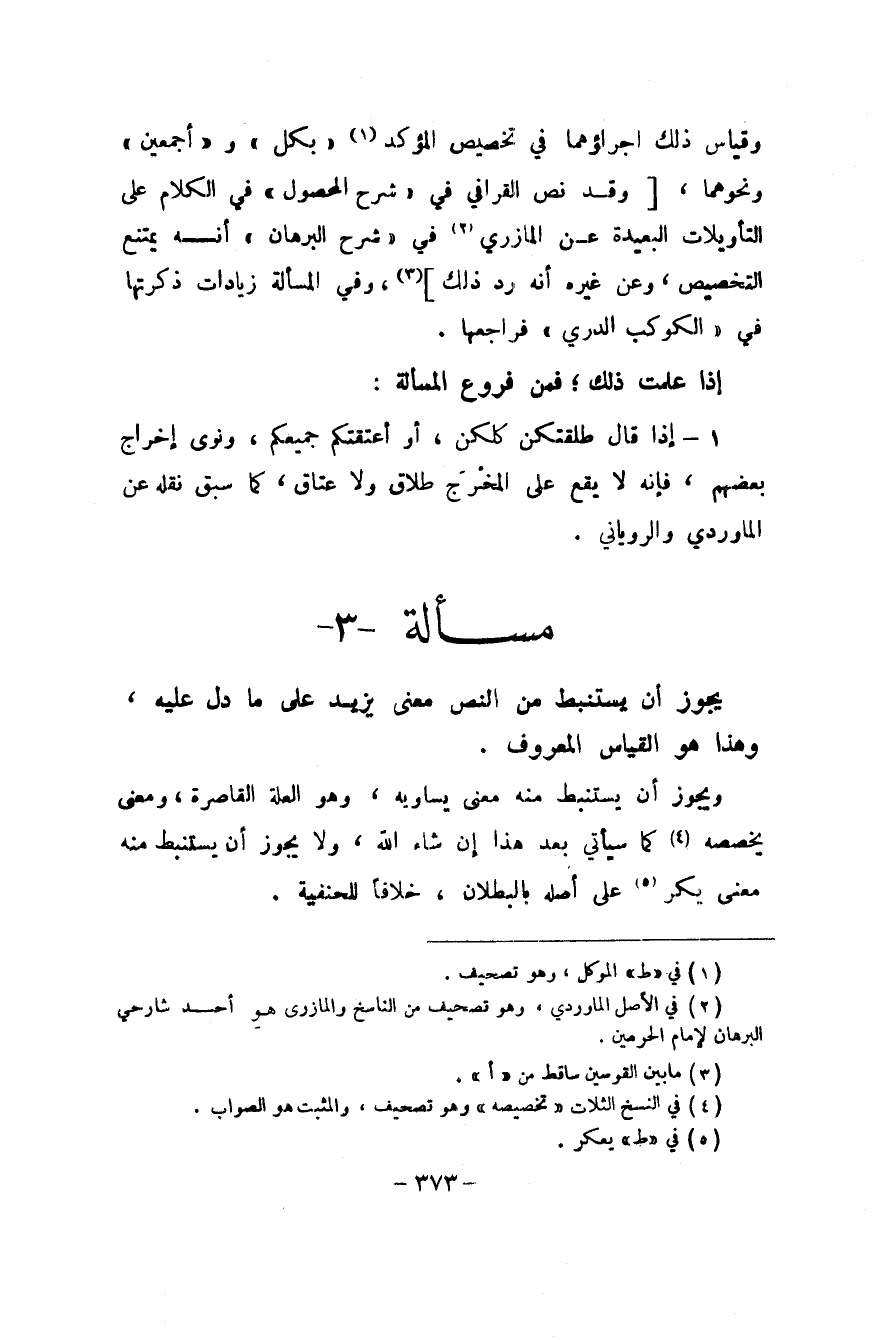 وقياس ذلك اجراؤهما في تخصيص المؤكد (١) « بكل » و « أجمعين »
ونحوهما ، [ وقد نص القرافي في « شرح المحصول » في الكلام على
التأويلات البعيدة عن المازري (٢) في « شرح البرهان » أنه يمتنع
التخصيص ، وعن غيره أنه رد ذلك ](٣) ، وفي المسألة زيادات ذكرتها
في « الكوكب الدري » فراجعها .
إذا علمت ذلك ؛ فمن فروع المسألة :
١ – إذا قال طلقتكن كلكن ، أو أعتقتكم جميعكم ، ونوى إخراج
بعضهم ، فإنه لا يقع على المخْرَج طلاق ولا عتاق ، كما سبق نقله عن
الماوردي والروياني .
مسألة -٣-
يجوز أن يستنبط من النص معنى يزيد على ما دل عليه ،
وهذا هو القياس المعروف .
ويجوز أن يستنبط منه معنى يساويه ، وهو العلة القاصرة ، ومعنى
يخصصه (٤) كما سيأتي بعد هذا إن شاء الله ، ولا يجوز أن يستنبط منه
معنى يكر (٥) على أصله بالبطلان ، خلافاً للحنفية .
(١) في «ط» الموكل ، وهو تصحيف .
(٢) في الأصل الماوردي ، وهو تصحيف من الناسخ والمازرى هو أحد شارحي
البرهان لإمام الحرمين .
(٣) مابين القوسين ساقط من « أ » .
(٤) في النسخ الثلاث « تخصيصه » وهو تصحيف ، والمثبت هو الصواب .
(٥) في «ط» يعكر .
– ٣٧٣ –